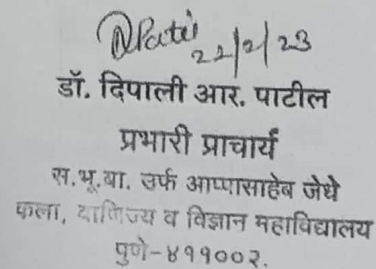 DPatil
22/2/23
डॉ. दिपाली आर. पाटील
प्रभारी प्राचार्य
स.भू.बा. उर्फ आप्पासाहेब जेधे
कला, वाणिज्य व विज्ञान महाविद्यालय
पुणे-४११००२.